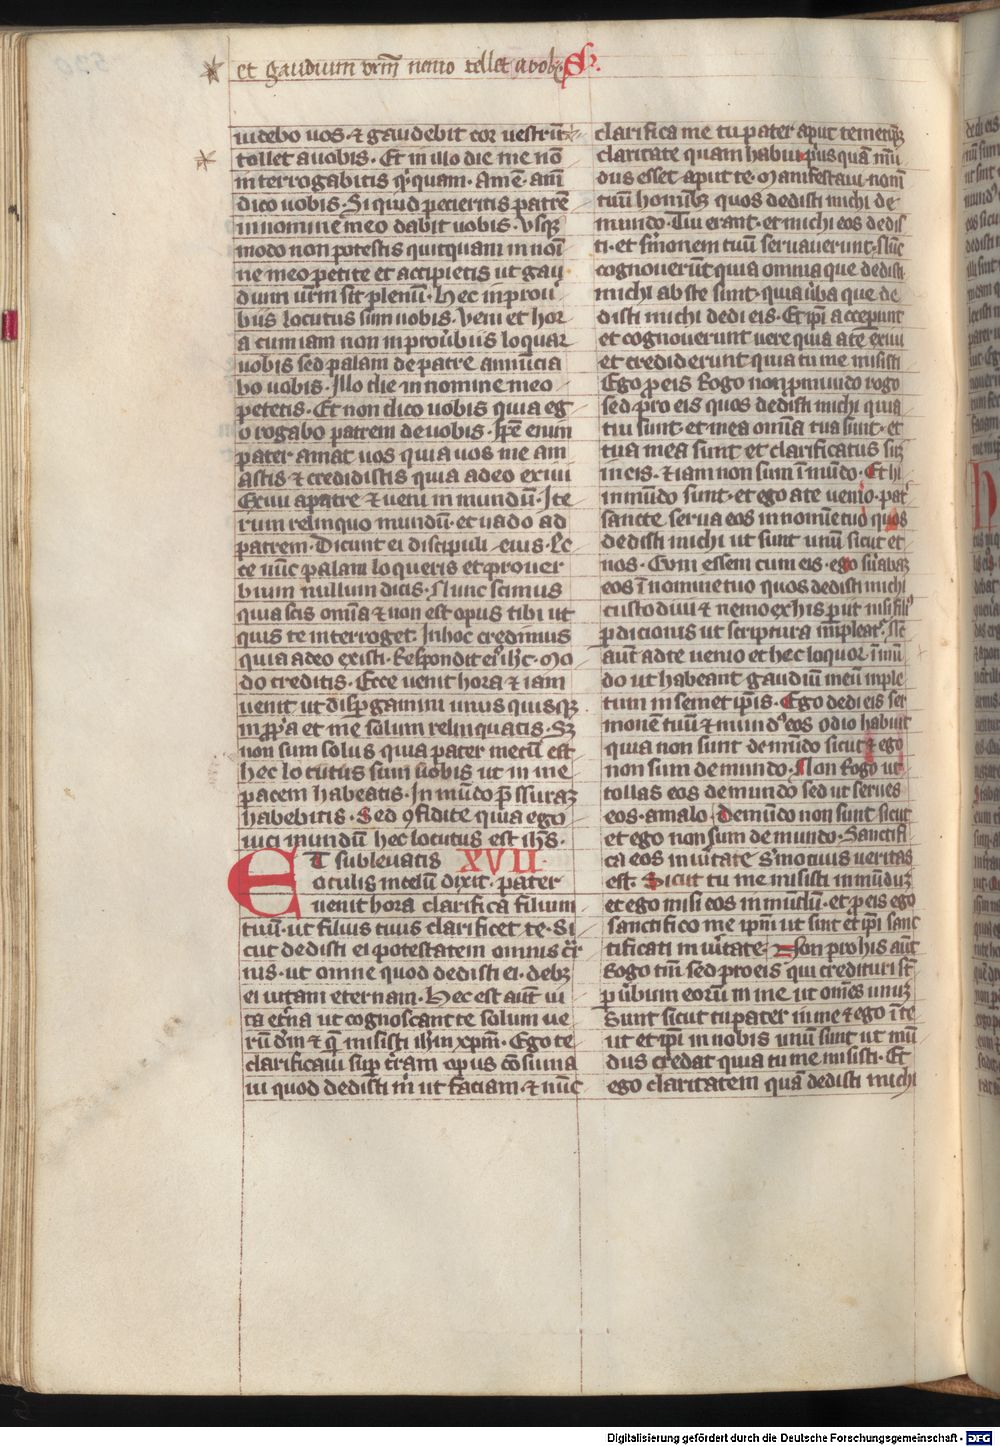 et gaudium vrm̄ nemo tollet a vobꝫ S h.
uidebo uos · ⁊ gaudebit cor uestrū
tollet a uobis · Et in illo die me nō
interrogabitis q̄cquam · Amē · amē
dico uobis · Si quid pecieritis patrē
in nomine meo dabit uobis · Vsqꝫ
modo non potestis quitquam in nōi
ne meo petite et accipietis ut gau
dium ur̄m sit plenū · Hec in prou
biis locutus sum uobis · Veni et hor
a cum iam non in prou̓biis loquar
uobis sed palam de patre annūcia
bo uobis · Illo die in nomine meo
petetis · Et non dico uobis quia eg
o rogabo patrem de uobis · Ip̄e enim
pater amat uos quia uos me am
astis ⁊ credidistis quia a deo exiui
Exiui a patre ⁊ ueni in mundū · Ite
rum relinquo mundū · et uado ad
patrem · Dicunt ei discipuli eius · Ec
ce nūc palam loqueris et prouer
bium nullum dicis · Nunc scimus
quia scis omīa ⁊ non est opus tibi ut
quis te interroget · In hoc credimus
quia a deo existi · Respondit eis ihc̄ · Mo
do creditis · Ecce uenit hora ⁊ iam
uenit ut disp̄gamini unus quisqꝫ
in p̄p̄a et me solum relinquatis · Sꝫ
non sum solus quia pater mecū est
hec locutus sum uobis ut in me
pacem habeatis · In mūdo p̄ssuraꝫ
habebitis · Sed ꝯfidite quia ego
uici mundū hec locutus est ihs̄ ·
ET subleuatis XVII ·
oculis in celū dixit · pater
uenit hora clarifica filium
tuū · ut filius tuus clarificet te · Si
cut dedisti ei potestatem omnis c̄r
nis · ut omne quod dedisti ei · debꝫ
ei uitam eternam · Hec est aūt ui
ta et̓na ut cognoscant te solum ue
rū dm̄ ⁊ q̄ misisti ihm̄ xpm̄ · Ego te
clarificaui sup t̄ram opus cōsūma
ui quod dedisti m̄ ut faciam · ⁊ nūc
clarifica me tu pater aput temetip̄ꝫ
claritate quam habui p̓us quā mū
dus esset aput te · Manifestaui nom̄
tuū hom̄ibꝫ quos dedisti michi de
mundo · Tui erant · et michi eos dedis
ti · et s̓monem tuū seruauerunt · Nūc
cognouerūt quia omnia que dedisti
michi abs te sunt · quia u̓ba que de
disti michi dedi eis · Et ip̄i acceperunt
et cognouerunt uere quia a te exiui
et crediderunt quia tu me misisti
Ego p̄ eis Rogo non p̄ mundo rogo
sed pro eis quos dedisti michi quia
tui sunt · et mea omīa tua sunt · et
tua mea sunt et clarificatus sū
in eis · ⁊ iam non sum ī mūdo · Et hi
in mūdo sunt · et ego a te uenio · pat̓
sancte serua eos in nomīe tuo quos
dedisti michi ut sunt unū sicut et
nos · Cum essem cum eis · ego s̓uabaꝫ
eos ī nomine tuo quos dedisti michi
custodiui ⁊ nemo ex his p̄ut nisi fili9
p̄dicionis ut scriptura impleat̓ · Nūc
aūt ad te uenio et hec loquor ī mū
do ut habeant gaudiū meū imple
tum in semet ip̄is · Ego dedi eis ser
monē tuū ⁊ mund9 eos odio habuit
quia non sunt de mūdo sicut ⁊ ego
non sum de mundo · Non Rogo ut
tollas eos de mundo sed ut serues
eos · a malo · De mūdo non sunt sicut
et ego non sum de mundo · Sanctifi
ca eos in u̓itate s̓mo tuus ueritas
est · Sicut tu me misisti in mūduꝫ
et ego misi eos in mūdū · et p̄ eis ego
sanctifico me ipm̄ ut sint et ip̄i sanc
tificati in u̓itate · Non pro his aūt
Rogo tm̄ sed pro eis qui credituri sūt
p̄ u̓bium eorū in me ut omēs unuꝫ
Sunt sicut tu pater in me ⁊ ego ī te
ut et ip̄i in nobis unū sunt ut mū
dus credat quia tu me misisti · Et
ego claritatem quā dedisti michi
Digitalisierung gefördert durch die Deutsche Forschungsgemeinschaft - DFG